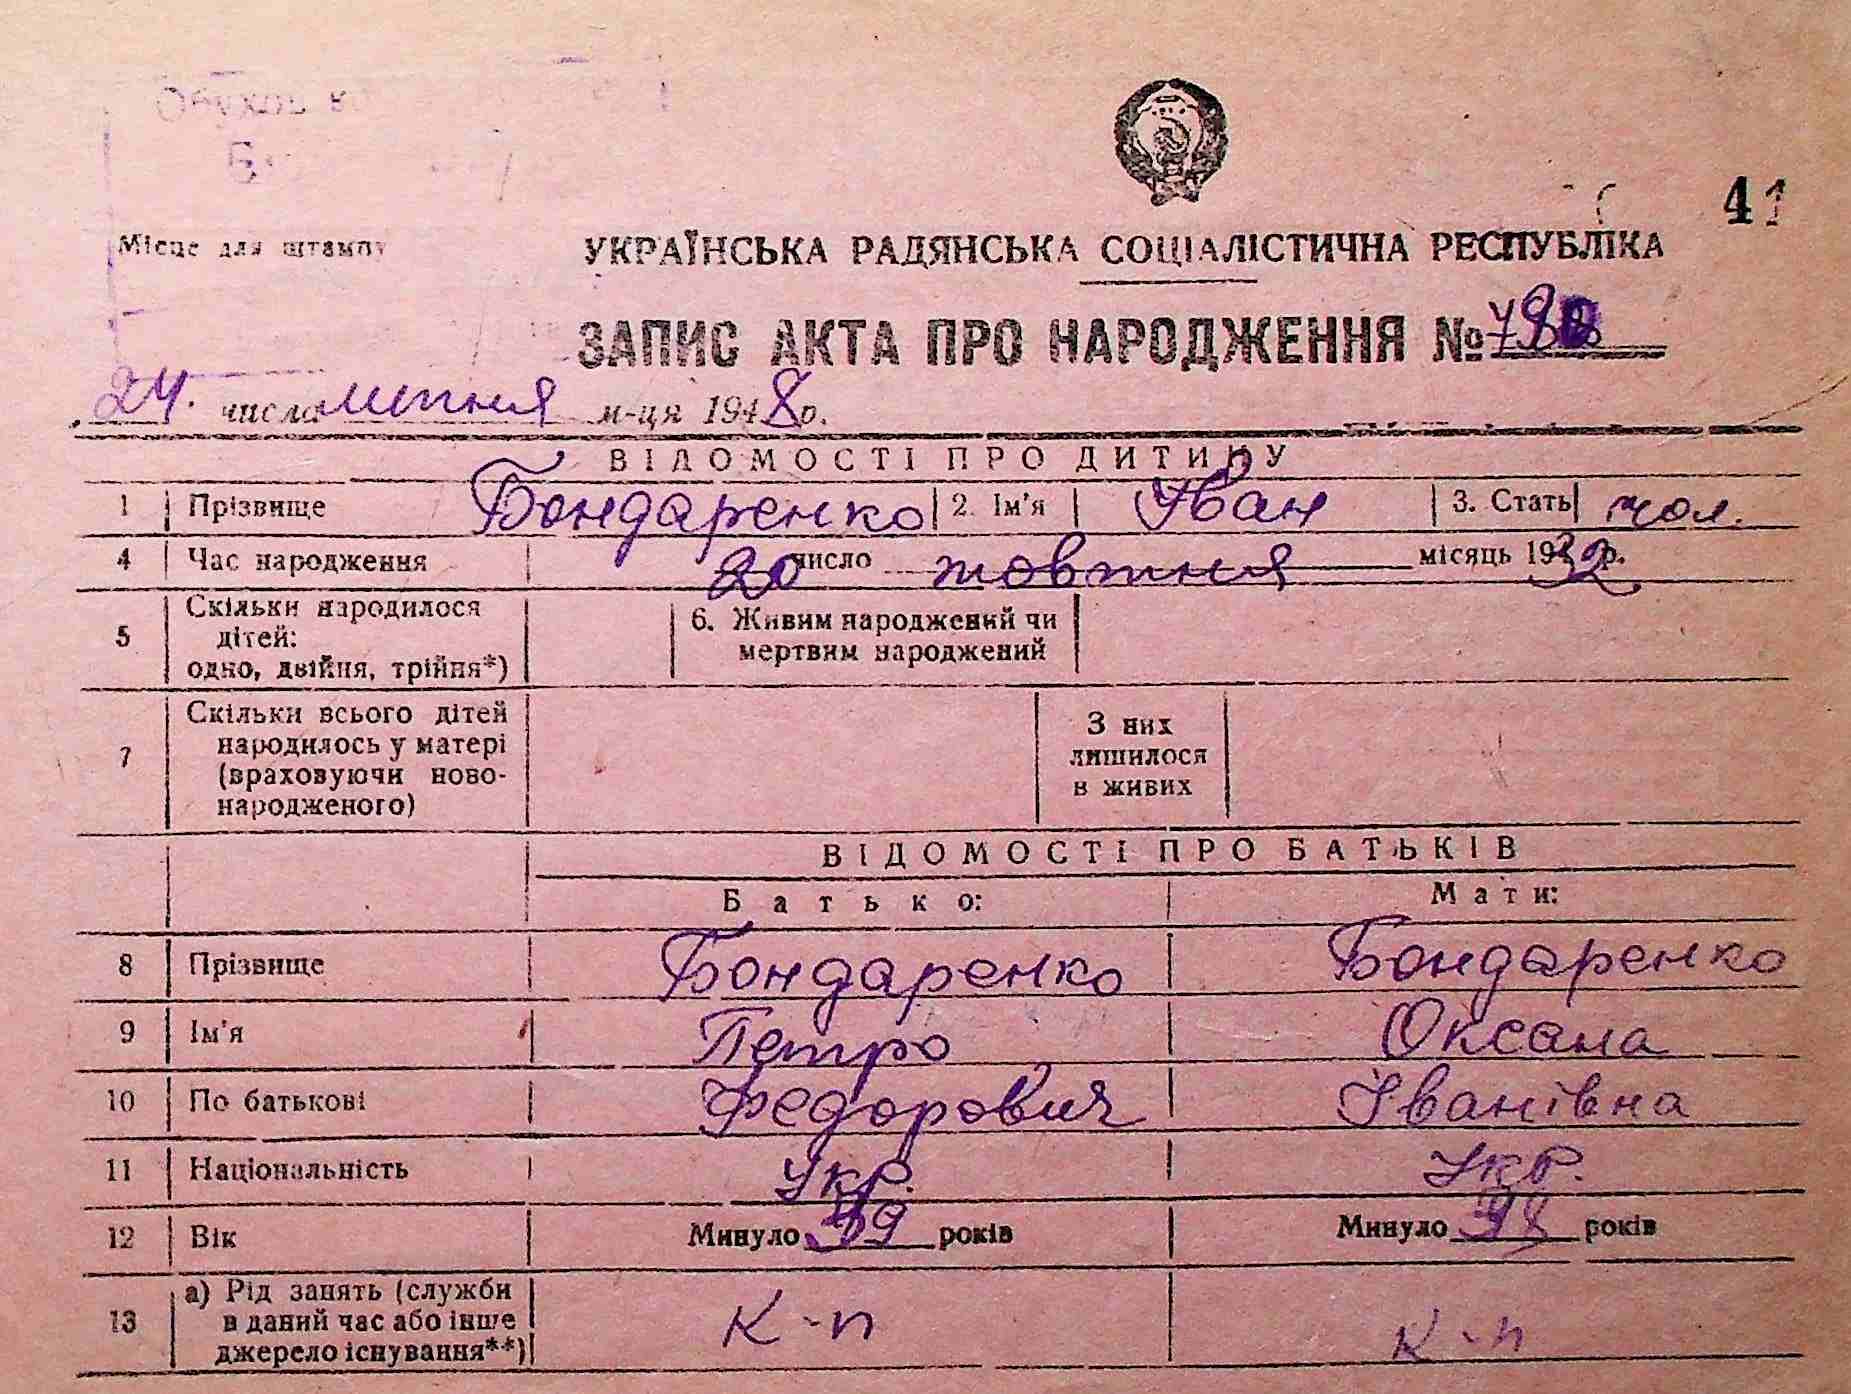 41
Місце для штампу
УКРАЇНСЬКА РАДЯНСЬКА СОЦІАЛІСТИЧНА РЕСПУБЛІКА
ЗАПИС АКТА ПРО НАРОДЖЕННЯ №
24. числа липня м-ця 1948 р.
ВІДОМОСТІ ПРО ДИТИНУ
1 Прізвище Бондаренко 2. Ім'я Іван 3. Стать чол.
4 Час народження 20 число жовтня місяць 1932 р.
5 Скільки народилося дітей: одно, двійня, трійня*) 6. Живим народжений чи мертвим народжений
7 Скільки всього дітей народилось у матері (враховуючи ново-народженого) З них лишилося в живих
ВІДОМОСТІ ПРО БАТЬКІВ
Батько: Мати:
8 Прізвище Бондаренко Бондаренко
9 Ім'я Петро Оксана
10 По батькові Федорович Іванівна
11 Національність Укр. Укр.
12 Вік Минуло років Минуло років
13 а) Рід занять (служби в даний час або інше джерело існування**) К-п К-п